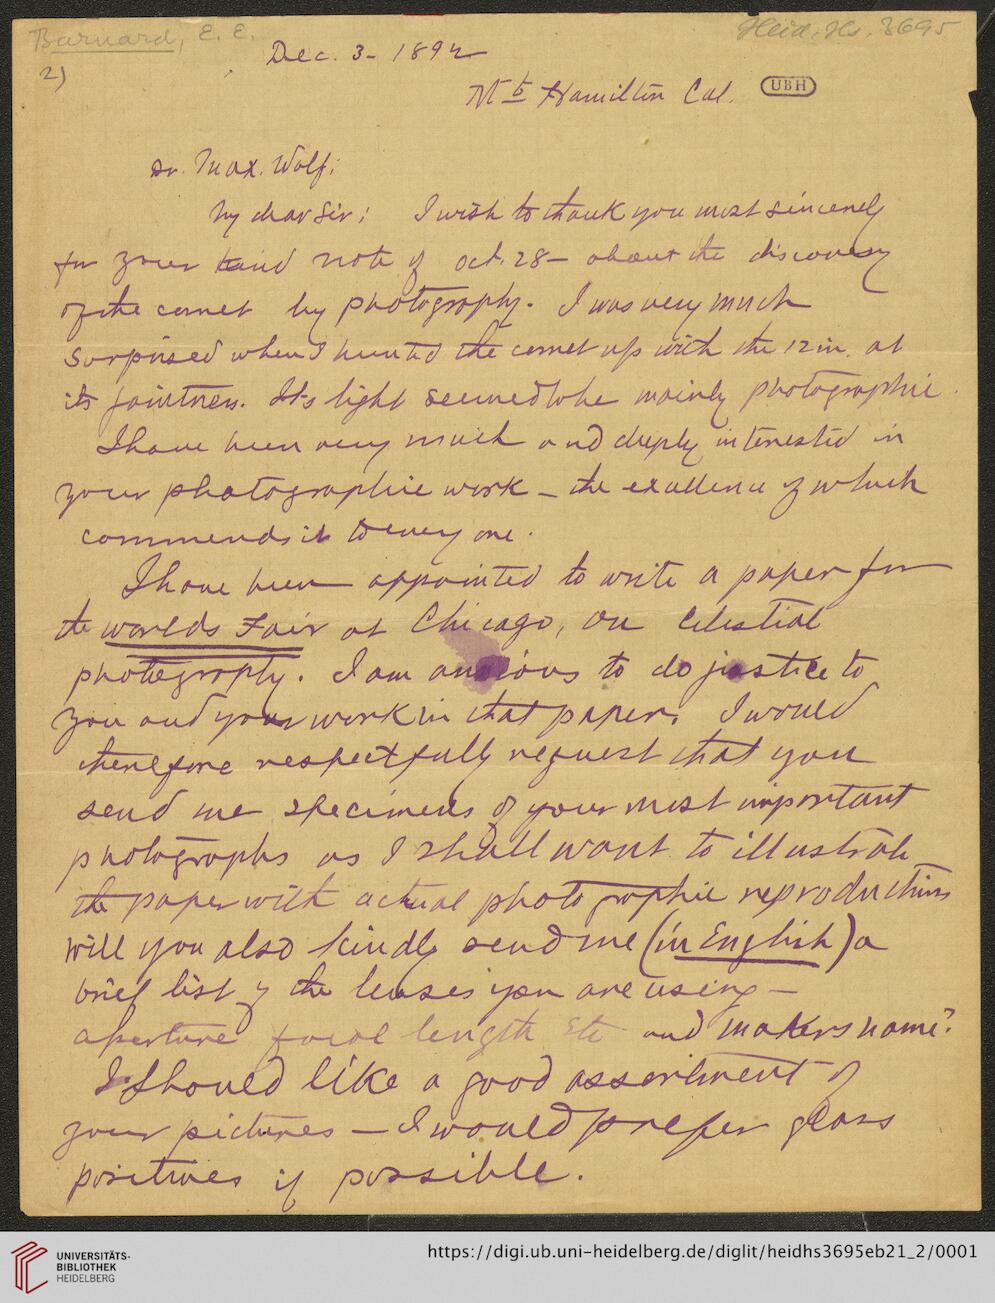 Barnard, E. E.
Heid. Hs. 3695
2)
Dec. 3- 1892
Mt Hamilton Cal.
UBH
Dr. Max. Wolf;
My dear Sir; I wish to thank you most sincerely
for your kind note of Oct. 28- about the discovery
of the comet by photography. I was very much
surprised when I hunted the comet up with the 12 in. at
its faintness. Its light seemed to be mainly photographic.
I have been very much and deeply interested in
your photographic work - the excellence of which
commends it to every one.
I have been appointed to write a paper for
the worlds Fair at Chicago, on Celestial
photography. I am anxious to do justice to
you and your work in that paper. I would
therefore respectfully request that you
send me specimens of your most important
photographs as I shall want to illustrate
the paper with actual photographic reproductions
will you also kindly send me (in English) a
brief list of the lenses you are using -
aperture focal length etc and makers name?
I should like a good assortment of
your pictures - I would prefer glass
positives if possible.
UNIVERSITÄTS-
BIBLIOTHEK
HEIDELBERG
https://digi.ub.uni-heidelberg.de/diglit/heidhs3695eb21_2/0001